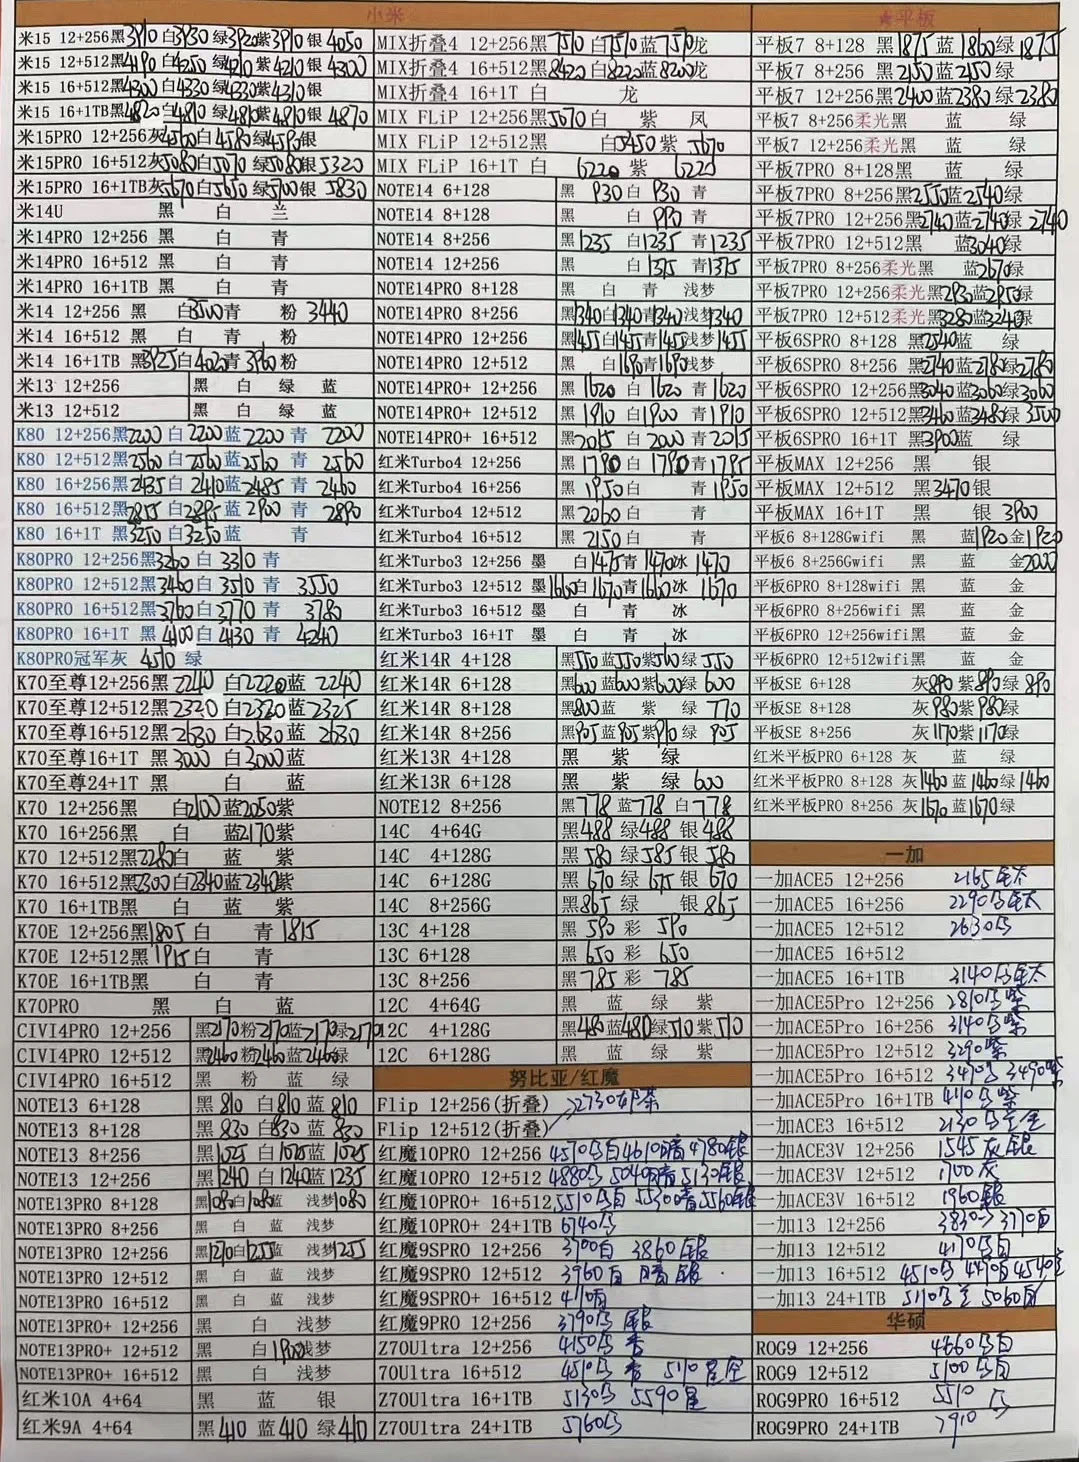 小米
米15 12+256黑3910 白3930 绿3920紫3910 银 4050
米15 12+512黑4190 白4250 绿4210 紫4210银 4300
米15 16+512黑4300 白4330绿4330紫4310银
米15 16+1TB黑4820白4810 绿4810紫4810银 4870
米15PRO 12+256灰4560白4580绿4590银
米15PRO 16+512灰5080白5070 绿5080银5320
米15PRO 16+1TB灰5670白5650 绿5700银 5830
米14U 黑 白 兰
米14PRO 12+256 黑 白 青
米14PRO 16+512 黑 白 青
米14PRO 16+1TB 黑 白 青
米14 12+256 黑 白3500青 粉 3440
米14 16+512 黑 白 青 粉
米14 16+1TB 黑3925白4020青 3960粉
米13 12+256 黑 白 绿 蓝
米13 12+512 黑 白 绿 蓝
K80 12+256黑2200 白 2200蓝2200 青 2200
K80 12+512黑2560 白 2560蓝2560 青 2560
K80 16+256黑2435 白 2410蓝2485 青 2460
K80 16+512黑2855 白 2895蓝 2900 青 2890
K80 16+1T 黑3250 白3250蓝 青
K80PRO 12+256黑3260 白 3310 青
K80PRO 12+512黑3460 白 3510 青 3550
K80PRO 16+512黑3760 白 3770 青 3780
K80PRO 16+1T 黑 4100白 4130 青 4240
K80PRO冠军灰 4570 绿
K70至尊12+256黑2240 白2220蓝 2240
K70至尊12+512黑2320 白2320蓝2325
K70至尊16+512黑2630 白2630蓝 2630
K70至尊16+1T 黑3000 白3000蓝
K70至尊24+1T 黑 白 蓝
K70 12+256黑 白2100蓝2050紫
K70 16+256黑 白 蓝2170紫
K70 12+512黑2280白 蓝 紫
K70 16+512黑2300白2340蓝2340紫
K70 16+1TB黑 白 蓝 紫
K70E 12+256黑1805 白 青 1815
K70E 12+512黑 1915白 青
K70E 16+1TB黑 白 青
K70PRO 黑 白 蓝
CIVI4PRO 12+256 黑2170粉2170蓝2170绿2170
CIVI4PRO 12+512 黑2460粉2460蓝2460绿
CIVI4PRO 16+512 黑 粉 蓝 绿
NOTE13 6+128 黑 810 白810 蓝 810
NOTE13 8+128 黑 830 白830 蓝 830
NOTE13 8+256 黑1025 白1025蓝 1025
NOTE13 12+256 黑1240 白1240蓝1235
NOTE13PRO 8+128 黑1080白1080蓝 浅梦1080
NOTE13PRO 8+256 黑 白 蓝 浅梦
NOTE13PRO 12+256 黑1270白1255蓝 浅梦1255
NOTE13PRO 12+512 黑 白 蓝 浅梦
NOTE13PRO 16+512 黑 白 蓝 浅梦
NOTE13PRO+ 12+256 黑 白 浅梦
NOTE13PRO+ 12+512 黑 白1900浅梦
NOTE13PRO+ 16+512 黑 白 浅梦
红米10A 4+64 黑 蓝 银
红米9A 4+64 黑410 蓝410 绿410
MIX折叠4 12+256黑 7510 白7510蓝 7570龙
MIX折叠4 16+512黑8420 白8220蓝8200龙
MIX折叠4 16+1T 白 龙
MIX FLiP 12+256黑5670 白 紫 凤
MIX FLiP 12+512黑 白5450紫 5670
MIX FLiP 16+1T 白 6220 紫 6220
NOTE14 6+128 黑 930 白 930 青
NOTE14 8+128 黑 白 990 青
NOTE14 8+256 黑1235 白1235 青1235
NOTE14 12+256 黑 白1375 青1375
NOTE14PRO 8+128 黑 白 青 浅梦
NOTE14PRO 8+256 黑1340白1340青1340浅梦1340
NOTE14PRO 12+256 黑1455白1455青1455浅梦1455
NOTE14PRO 12+512 黑 白1690青1690浅梦
NOTE14PRO+ 12+256 黑 1620 白 1620 青 1620
NOTE14PRO+ 12+512 黑 1910 白1900 青1910
NOTE14PRO+ 16+512 黑2015 白 2000 青2015
红米Turbo4 12+256 黑 1790 白 1790青1795
红米Turbo4 16+256 黑 1950白 青1950
红米Turbo4 12+512 黑2060白 青
红米Turbo4 16+512 黑 2150白 青
红米Turbo3 12+256 墨 白1475青1470冰 1470
红米Turbo3 12+512 墨1660白1670青1660冰 1670
红米Turbo3 16+512 墨 白 青 冰
红米Turbo3 16+1T 墨 白 青 冰
红米14R 4+128 黑550蓝550紫560绿 550
红米14R 6+128 黑600蓝600紫600绿 600
红米14R 8+128 黑800蓝 紫 绿 770
红米14R 8+256 黑905蓝 905紫910 绿 905
红米13R 4+128 黑 紫 绿
红米13R 6+128 黑 紫 绿 600
NOTE12 8+256 黑778 蓝778 白778
14C 4+64G 黑488 绿488 银 488
14C 4+128G 黑 580 绿 585 银 580
14C 6+128G 黑 670 绿 675 银 670
14C 8+256G 黑865 绿 银 865
13C 4+128 黑 590 彩 590
13C 6+128 黑 650 彩 650
13C 8+256 黑 785 彩 785
12C 4+64G 黑 蓝 绿 紫
12C 4+128G 黑480蓝480绿510紫510
12C 6+128G 黑 蓝 绿 紫
努比亚/红魔
Flip 12+256(折叠) 2730
Flip 12+512(折叠)
红魔10PRO 12+256 4570 白4610暗4780银
红魔10PRO 12+512 4880 5040暗5130银
红魔10PRO+ 16+512 5510 白5530暗5560银
红魔10PRO+ 24+1TB 6740
红魔9SPRO 12+256 3700白 3860银
红魔9SPRO 12+512 3960白 暗 银
红魔9SPRO+ 16+512 4110
红魔9PRO 12+256 3790 银
Z70Ultra 12+256 4150
70Ultra 16+512 4510 5110星空
Z70Ultra 16+1TB 5130 5590星
Z70Ultra 24+1TB 5760
★平板
平板7 8+128 黑1875蓝1860绿1875
平板7 8+256 黑2150蓝2150绿
平板7 12+256黑2400蓝2380绿2380
平板7 8+256柔光黑 蓝 绿
平板7 12+256柔光黑 蓝 绿
平板7PRO 8+128黑 蓝 绿
平板7PRO 8+256黑2550蓝2540绿
平板7PRO 12+256黑2740蓝2740绿 2740
平板7PRO 12+512黑 蓝3040绿
平板7PRO 8+256柔光黑 蓝2670绿
平板7PRO 12+256柔光黑2930蓝2950绿
平板7PRO 12+512柔光黑3280蓝3240绿
平板6SPRO 8+128 黑2540蓝 绿
平板6SPRO 8+256 黑2740蓝2780绿2780
平板6SPRO 12+256黑3040蓝3060绿3060
平板6SPRO 12+512黑3460蓝3480绿3500
平板6SPRO 16+1T 黑3900蓝 绿
平板MAX 12+256 黑 银
平板MAX 12+512 黑3470银
平板MAX 16+1T 黑 银 3900
平板6 8+128Gwifi 黑 蓝1920金1920
平板6 8+256Gwifi 黑 蓝 金2000
平板6PRO 8+128wifi 黑 蓝 金
平板6PRO 8+256wifi 黑 蓝 金
平板6PRO 12+256wifi黑 蓝 金
平板6PRO 12+512wifi黑 蓝 金
平板SE 6+128 灰890紫890绿 890
平板SE 8+128 灰980紫980绿
平板SE 8+256 灰1170紫1170绿
红米平板PRO 6+128 灰 蓝 绿
红米平板PRO 8+128 灰1460蓝1460绿1460
红米平板PRO 8+256 灰1670蓝1670绿
一加
一加ACE5 12+256 2165 钛
一加ACE5 16+256 2290 钛
一加ACE5 12+512 2630
一加ACE5 16+512
一加ACE5 16+1TB 3140 钛
一加ACE5Pro 12+256 2810 紫
一加ACE5Pro 16+256 3140 紫
一加ACE5Pro 12+512 3290紫
一加ACE5Pro 16+512 3490 3490紫
一加ACE5Pro 16+1TB 4110 紫
一加ACE3 16+512 2130
一加ACE3V 12+256 1545 灰银
一加ACE3V 12+512 1700 灰
一加ACE3V 16+512 1960银
一加13 12+256 3830 3770白
一加13 12+512 4170 白
一加13 16+512 4510 4490白4540
一加13 24+1TB 5110 5060白
华硕
ROG9 12+256 4660 白
ROG9 12+512 5100 白
ROG9PRO 16+512 5510
ROG9PRO 24+1TB 7910